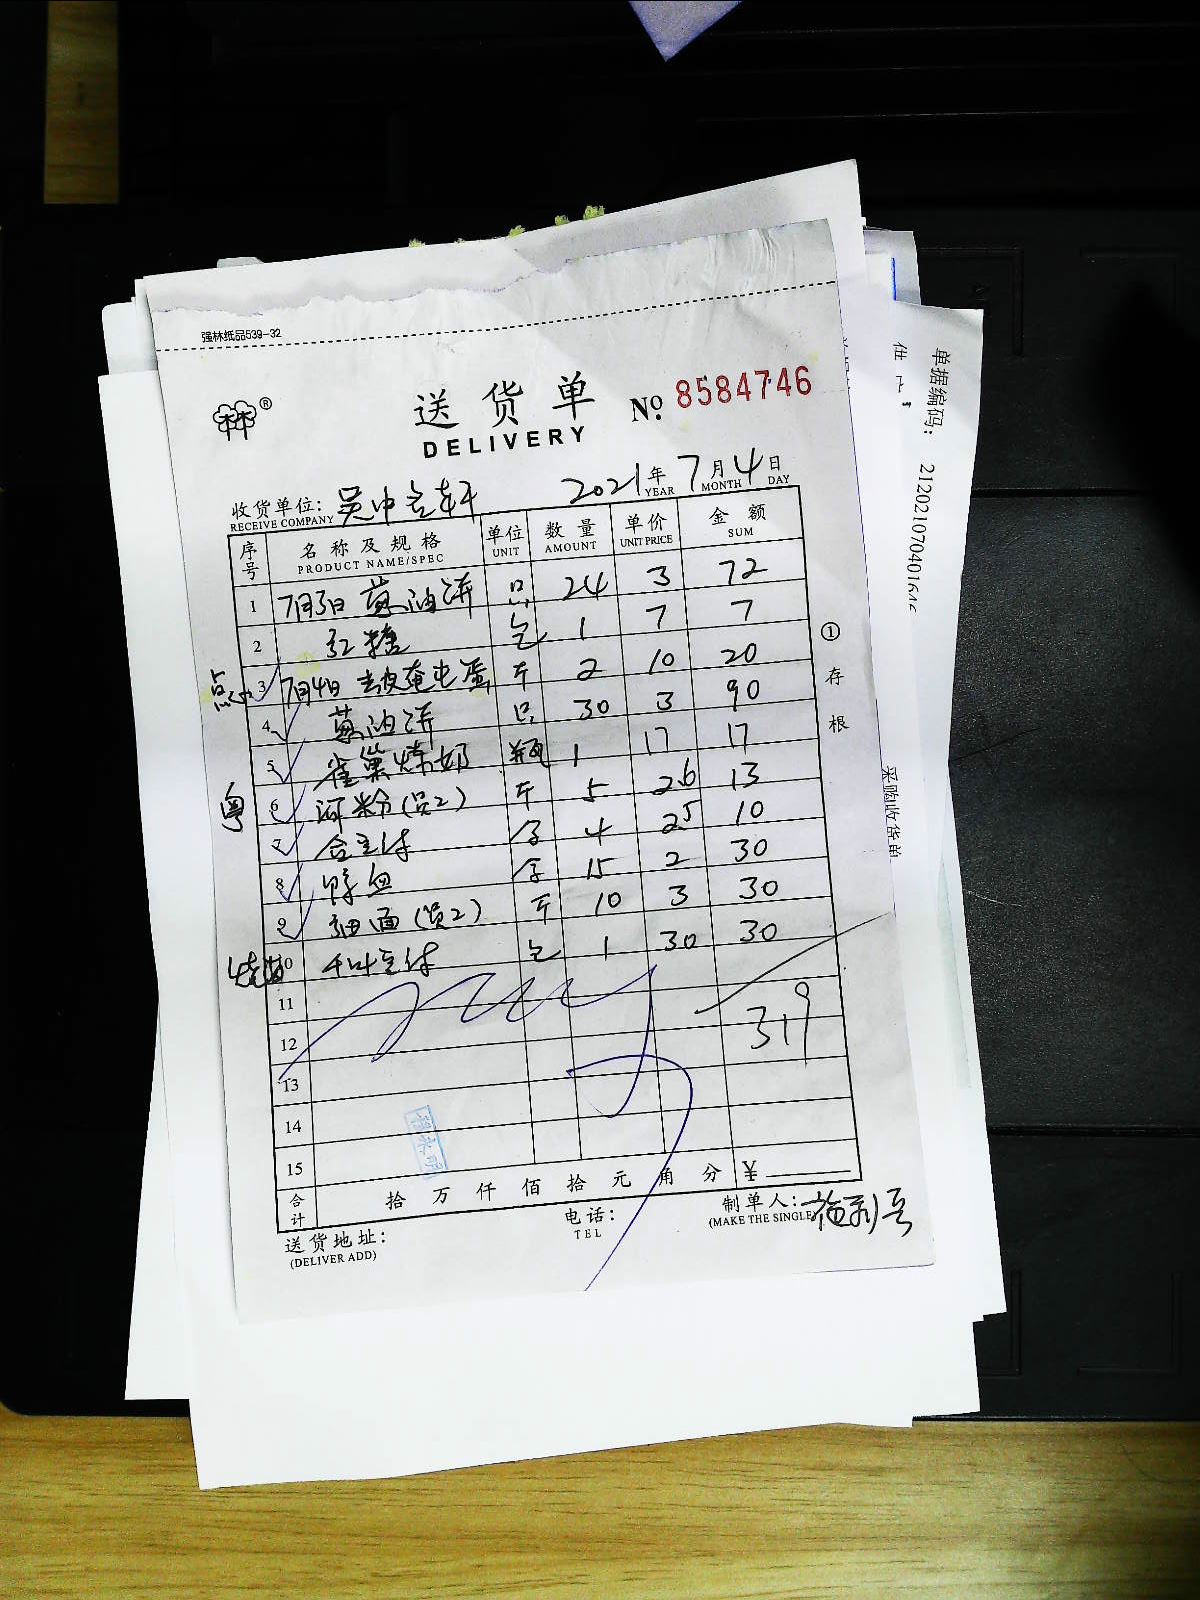 强林纸品539-32
林®
送货单 No. 8584746
DELIVERY
收货单位: 吴中 轩 2021年7月4日
RECEIVE COMPANY YEAR MONTH DAY
序号 名称及规格 单位 数量 单价 金额
PRODUCT NAME/SPEC UNIT AMOUNT UNIT PRICE SUM
1 7月3日 葱油饼 只 24 3 72
2 红糖 包 1 7 7
点心 3 7月4日 去皮 蛋 斤 2 10 20
4 葱油饼 只 30 3 90
5 雀巢炼奶 瓶 1 17 17
粤 6 河粉(员2) 斤 5 2.6 13
7 4 2.5 10
8 15 2 30
9 细面(员2) 斤 10 3 30
10 千叶豆付 包 1 30 30
11
12 319
13
14
15
合计 拾 万 仟 佰 拾 元 角 分 ¥
送货地址: 电话: 制单人:
(DELIVER ADD) TEL (MAKE THE SINGLE
① 存根
单据编码:
采购收货单